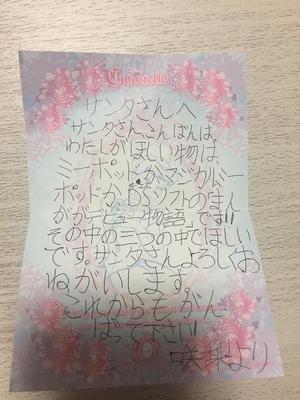 Cinderella
サンタさんへ
サンタさん、こんばんは。
わたしがほしい物は
ミーポッドかマジカルムー
ポッドか DSソフトのまん
がかデビュー物語」です!!
その中の三つの中でほしい
です。サンタさんよろしくお
ねがいします。
これからもがん
ばって下さい!
より